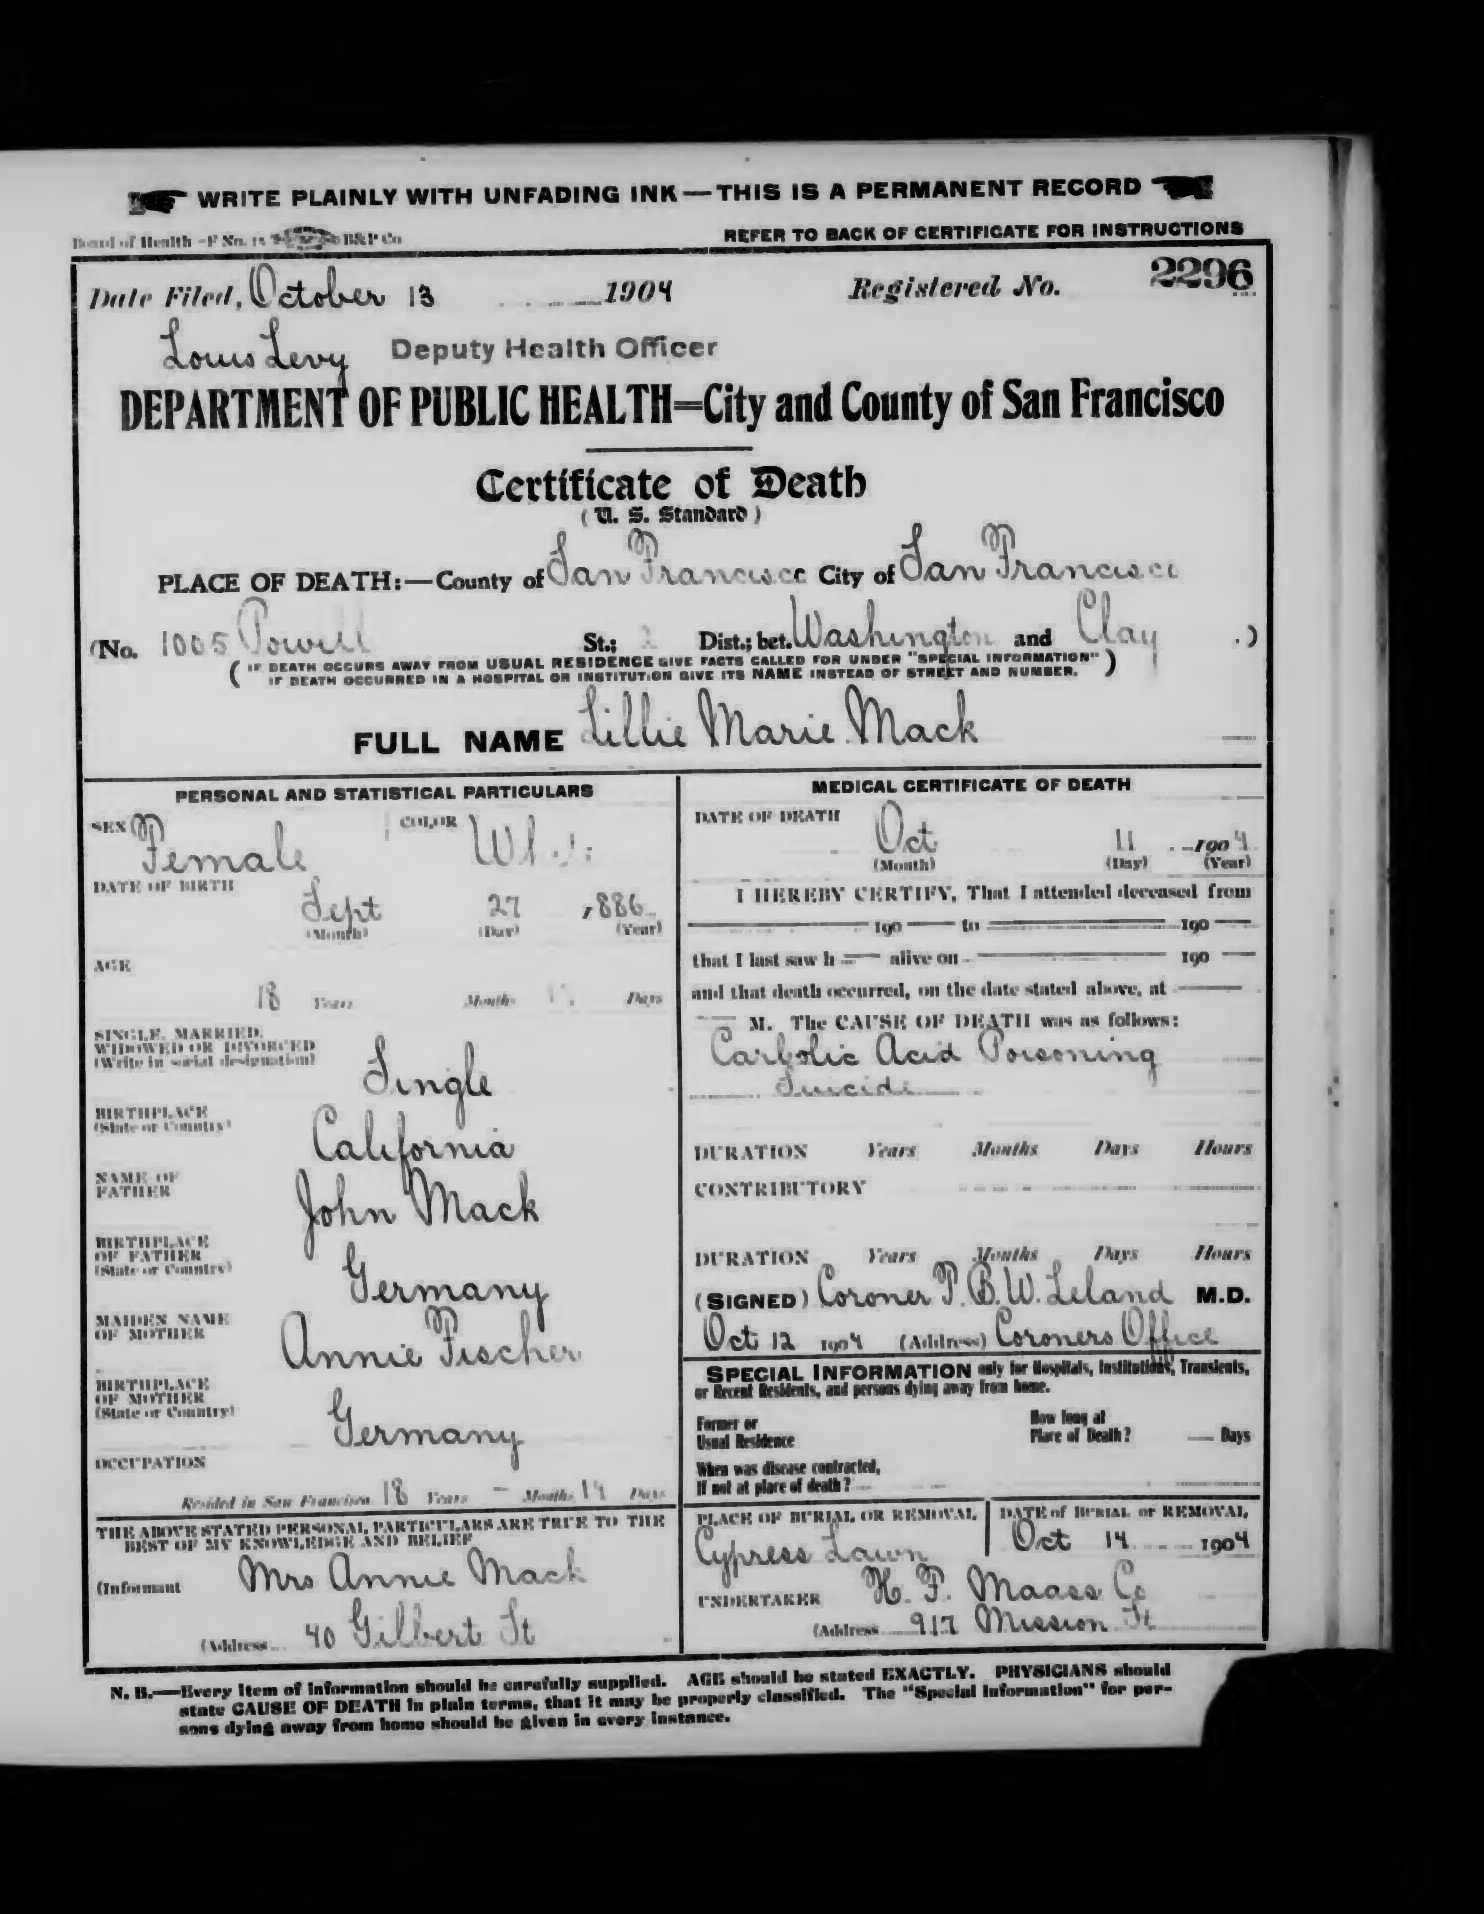 WRITE PLAINLY WITH UNFADING INK — THIS IS A PERMANENT RECORD
Board of Health -F No. B&P Co
REFER TO BACK OF CERTIFICATE FOR INSTRUCTIONS
Date Filed, October 13 1904 Registered No. 2296
Louis Levy Deputy Health Officer
DEPARTMENT OF PUBLIC HEALTH=City and County of San Francisco
Certificate of Death
( U. S. Standard )
PLACE OF DEATH:—County of San Francisco City of San Francisco
(No. 1005 Powell St.; 2 Dist.; bet. Washington and Clay .)
( IF DEATH OCCURS AWAY FROM USUAL RESIDENCE GIVE FACTS CALLED FOR UNDER "SPECIAL INFORMATION" )
( IF DEATH OCCURRED IN A HOSPITAL OR INSTITUTION GIVE ITS NAME INSTEAD OF STREET AND NUMBER. )
FULL NAME Lillie Marie Mack
PERSONAL AND STATISTICAL PARTICULARS
SEX Female COLOR
DATE OF BIRTH
Sept 27 1886
(Month) (Day) (Year)
AGE
18 Years Months Days
SINGLE, MARRIED,
WIDOWED OR DIVORCED
(Write in social designation)
Single
BIRTHPLACE
(State or Country)
California
NAME OF
FATHER
John Mack
BIRTHPLACE
OF FATHER
(State or Country)
Germany
MAIDEN NAME
OF MOTHER
Annie Fischer
BIRTHPLACE
OF MOTHER
(State or Country)
Germany
OCCUPATION
Resided in San Francisco 18 Years — Months 14 Days
THE ABOVE STATED PERSONAL PARTICULARS ARE TRUE TO THE
BEST OF MY KNOWLEDGE AND BELIEF
(Informant Mrs Annie Mack
(Address 40 Gilbert St
MEDICAL CERTIFICATE OF DEATH
DATE OF DEATH
Oct 11 1904
(Month) (Day) (Year)
I HEREBY CERTIFY, That I attended deceased from
190 to 190
that I last saw h alive on 190
and that death occurred, on the date stated above, at
M. The CAUSE OF DEATH was as follows:
Carbolic Acid Poisoning
Suicide
DURATION Years Months Days Hours
CONTRIBUTORY
DURATION Years Months Days Hours
(SIGNED) Coroner T. B. W. Leland M.D.
Oct 12 1904 (Address) Coroners Office
SPECIAL INFORMATION only for Hospitals, Institutions, Transients,
or Recent Residents, and persons dying away from home.
Former or
Usual Residence
How long at
Place of Death? Days
When was disease contracted,
If not at place of death?
PLACE OF BURIAL OR REMOVAL
Cypress Lawn
DATE of BURIAL or REMOVAL
Oct 14 1904
UNDERTAKER H. F. Maass Co
(Address 917 Mission St
N. B.—Every item of information should be carefully supplied. AGE should be stated EXACTLY. PHYSICIANS should
state CAUSE OF DEATH in plain terms, that it may be properly classified. The "Special Information" for per-
sons dying away from home should be given in every instance.